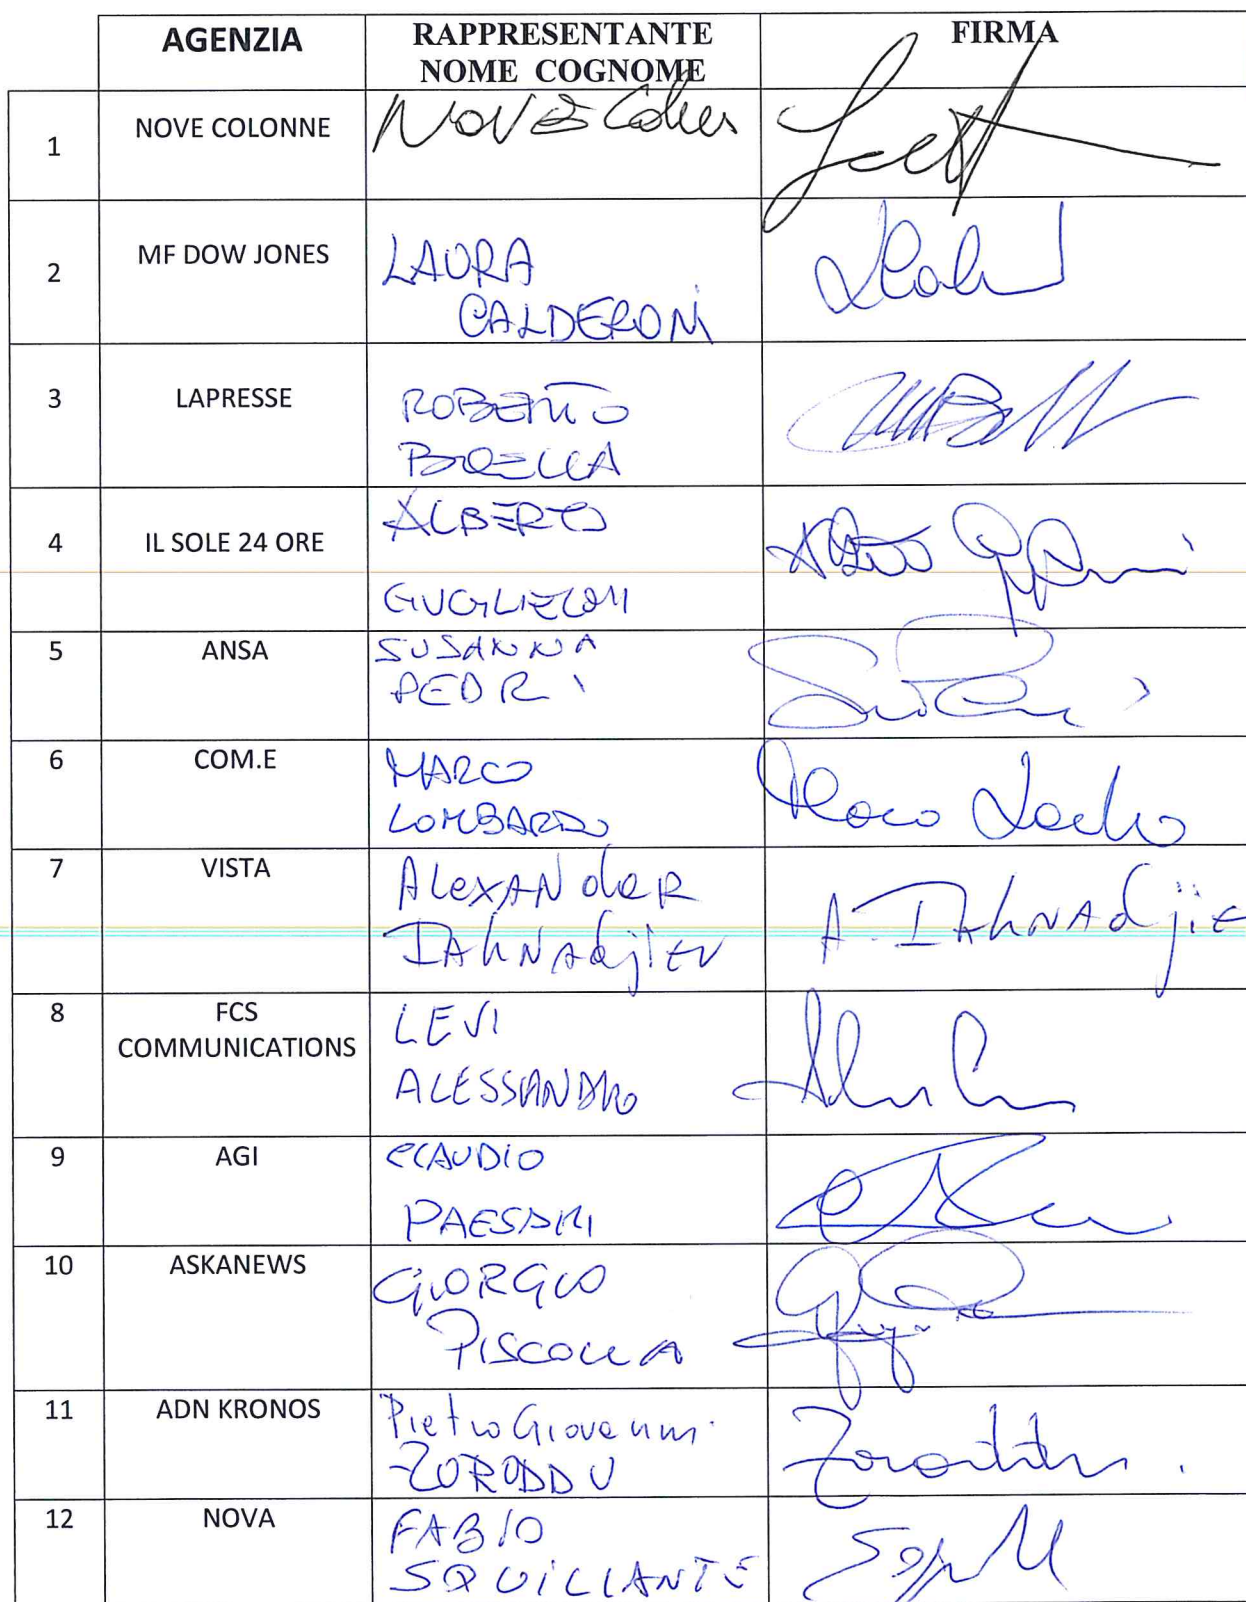 AGENZIA RAPPRESENTANTE FIRMA
NOME COGNOME
1 NOVE COLONNE NOVE
2 MF DOW JONES LAURA
CALDERONI
3 LAPRESSE ROBERTO
BRELLA
4 IL SOLE 24 ORE ALBERTO
GUGLIELMI
5 ANSA SUSANNA
PEDRI
6 COM.E MARCO
LOMBARDO
7 VISTA ALEXANdeR
IAhNAdjIEV A. IAhNAdjiE
8 FCS LEVI
COMMUNICATIONS ALESSANDRO
9 AGI CLAUDIO
PAESANI
10 ASKANEWS GIORGIO
11 ADN KRONOS Pietro Giovanni
ZORODDU Zoroddu
12 NOVA FABIO
SQUILLANTE